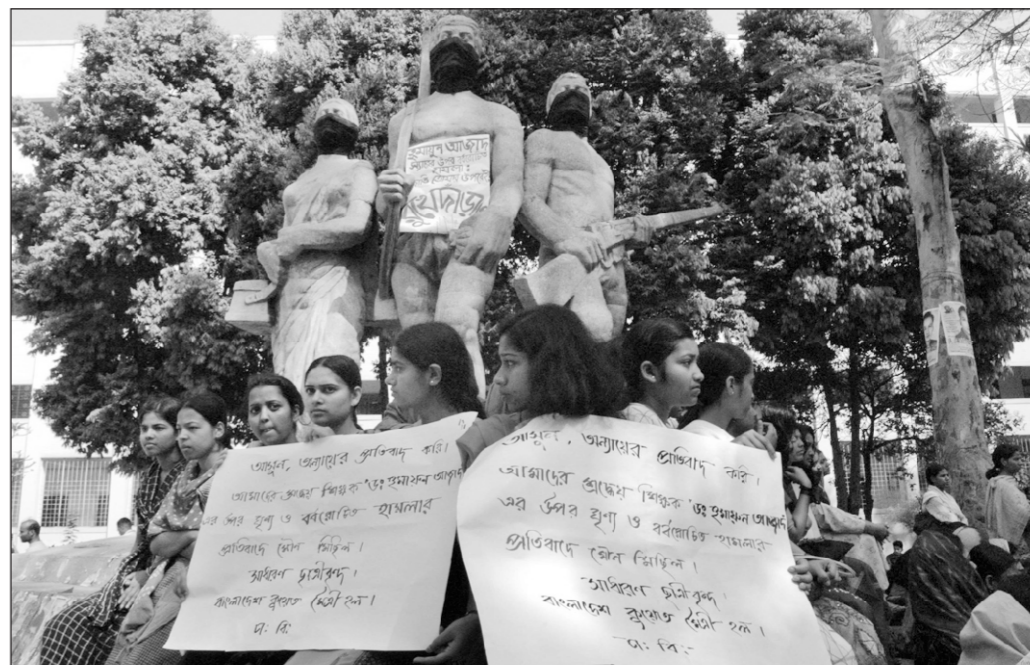 হুমায়ুন আজাদ
রুখে দাঁড়াও
আসুন, অন্যায়ের প্রতিবাদ করি।
আমাদের শ্রদ্ধেয় শিক্ষক ডঃ হুমায়ন আজাদ
এর উপর ঘৃণ্য ও বর্বরোচিত হামলার
প্রতিবাদে মৌন মিছিল।
সাধারণ ছাত্রীবৃন্দ।
বাংলাদেশ কুয়েত মৈত্রী হল।
আসুন, অন্যায়ের প্রতিবাদ করি।
আমাদের শ্রদ্ধেয় শিক্ষক ডঃ হুমায়ন আজাদ
এর উপর ঘৃণ্য ও বর্বরোচিত হামলার
প্রতিবাদে মৌন মিছিল।
সাধারণ ছাত্রীবৃন্দ।
বাংলাদেশ কুয়েত মৈত্রী হল।